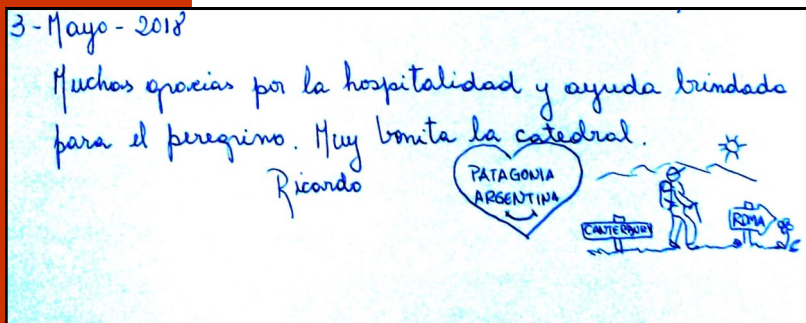 3-Mayo-2018
Muchas gracias por la hospitalidad y ayuda brindada
para el peregrino. Muy bonita la catedral.
Ricardo
PATAGONIA
ARGENTINA
CANTERBURY
ROMA